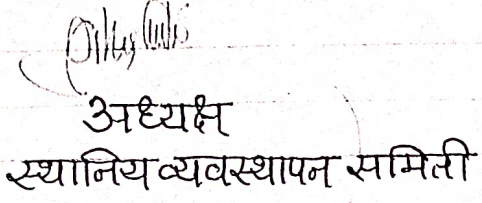 अध्यक्ष
स्थानिय व्यवस्थापन समिती